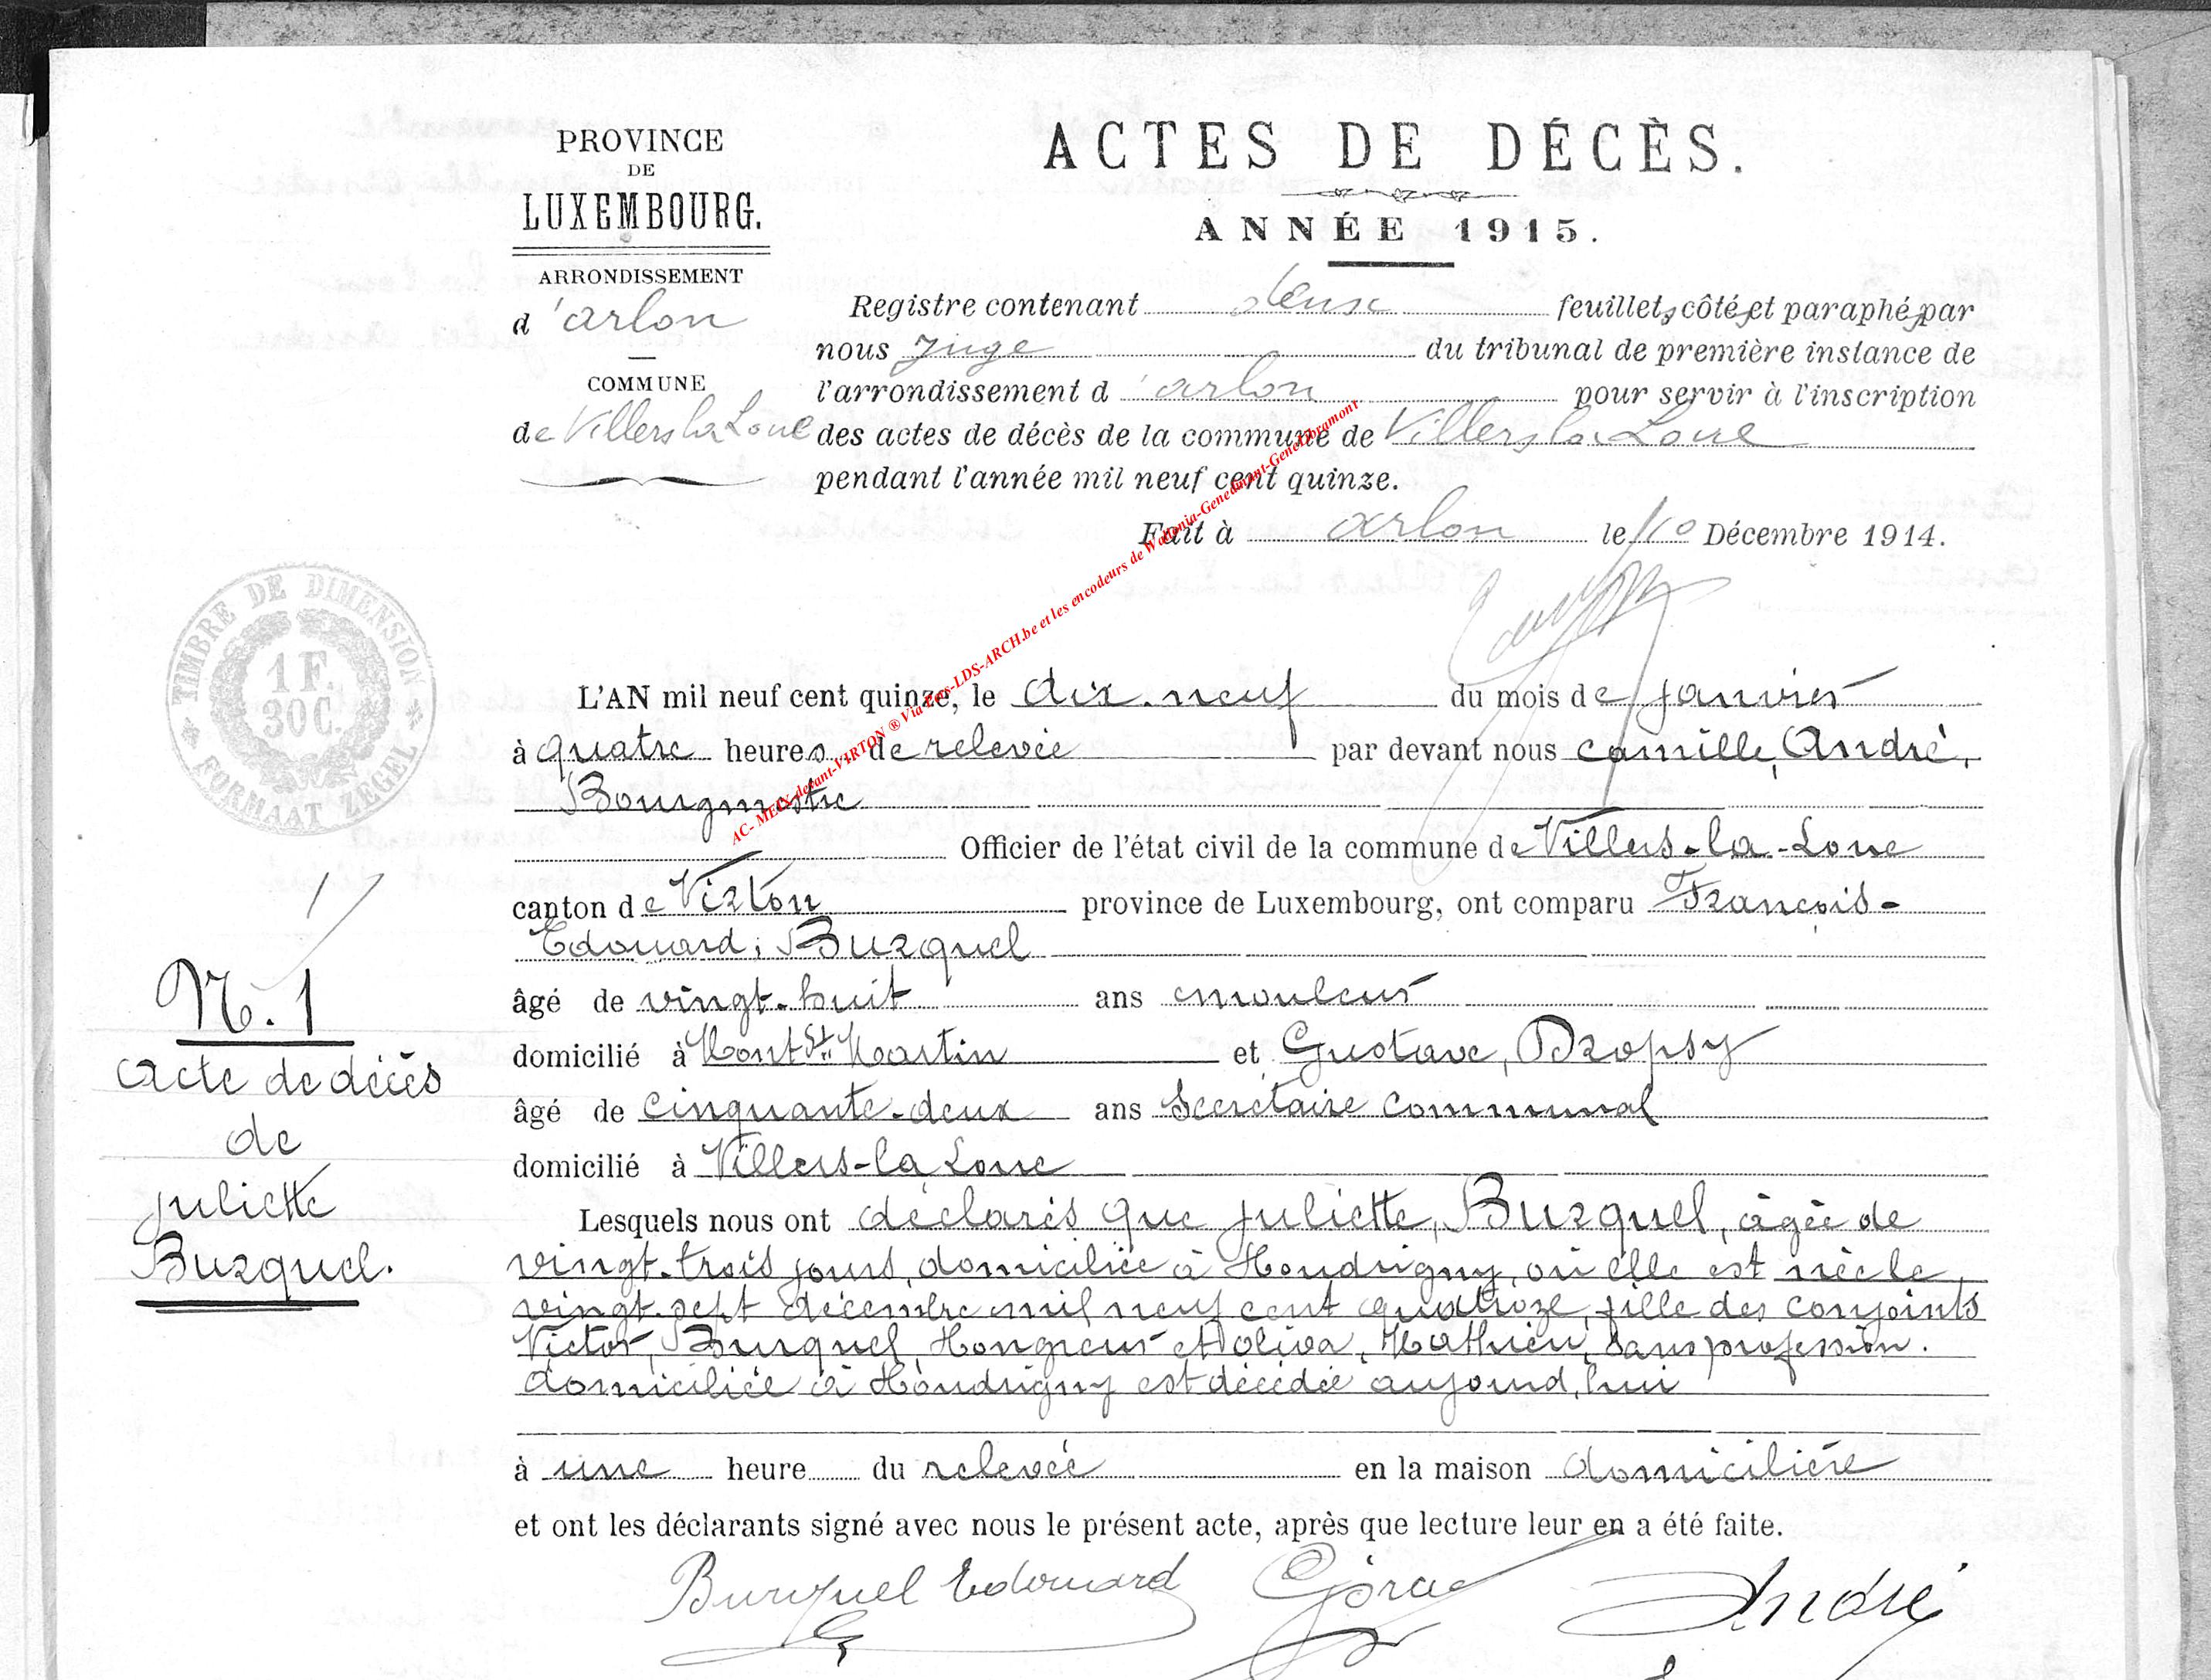 PROVINCE
DE
LUXEMBOURG.
ARRONDISSEMENT
d'arlon
COMMUNE
de Villers la Loue
ACTES DE DÉCÈS.
ANNÉE 1915.
Registre contenant deux feuillets côtés et paraphés par
nous Juge du tribunal de première instance de
l'arrondissement d'arlon pour servir à l'inscription
des actes de décès de la commune de Villers la Loue
pendant l'année mil neuf cent quinze.
Fait à arlon le 10 Décembre 1914.
TIMBRE DE DIMENSION
1 F.
30 C.
FORMAAT ZEGEL
AC- MEIX-devant-VIRTON ® Via LDS-ARCH.be et les encodeurs de Wallonia-Genedinant-GeneLibramont
L'AN mil neuf cent quinze, le dix-neuf du mois de janvier
à quatre heures de relevée par devant nous Camille, André,
Bourgmestre
Officier de l'état civil de la commune de Villers-la-Loue
canton de Virton province de Luxembourg, ont comparu François-
Edouard, Burquel
âgé de vingt-huit ans mouleur
domicilié à Mont St. Martin et Gustave, Dropsy
âgé de cinquante-deux ans Secrétaire Communal
domicilié à Villers-la Loue
Lesquels nous ont déclarés que Juliette, Burquel, âgée de
vingt-trois jours, domiciliée à Houdrigny, où elle est née le
vingt-sept décembre mil neuf cent quatroze, fille des conjoints
Victor, Burquel, Hongreur et Oliva, Mathieu, sans profession.
domiciliée à Houdrigny est décédée aujourd'hui
à une heure du relevée en la maison domicilière
et ont les déclarants signé avec nous le présent acte, après que lecture leur en a été faite.
N. 1
Acte de décès
de
Juliette
Burquel.
Burquel Edouard
André